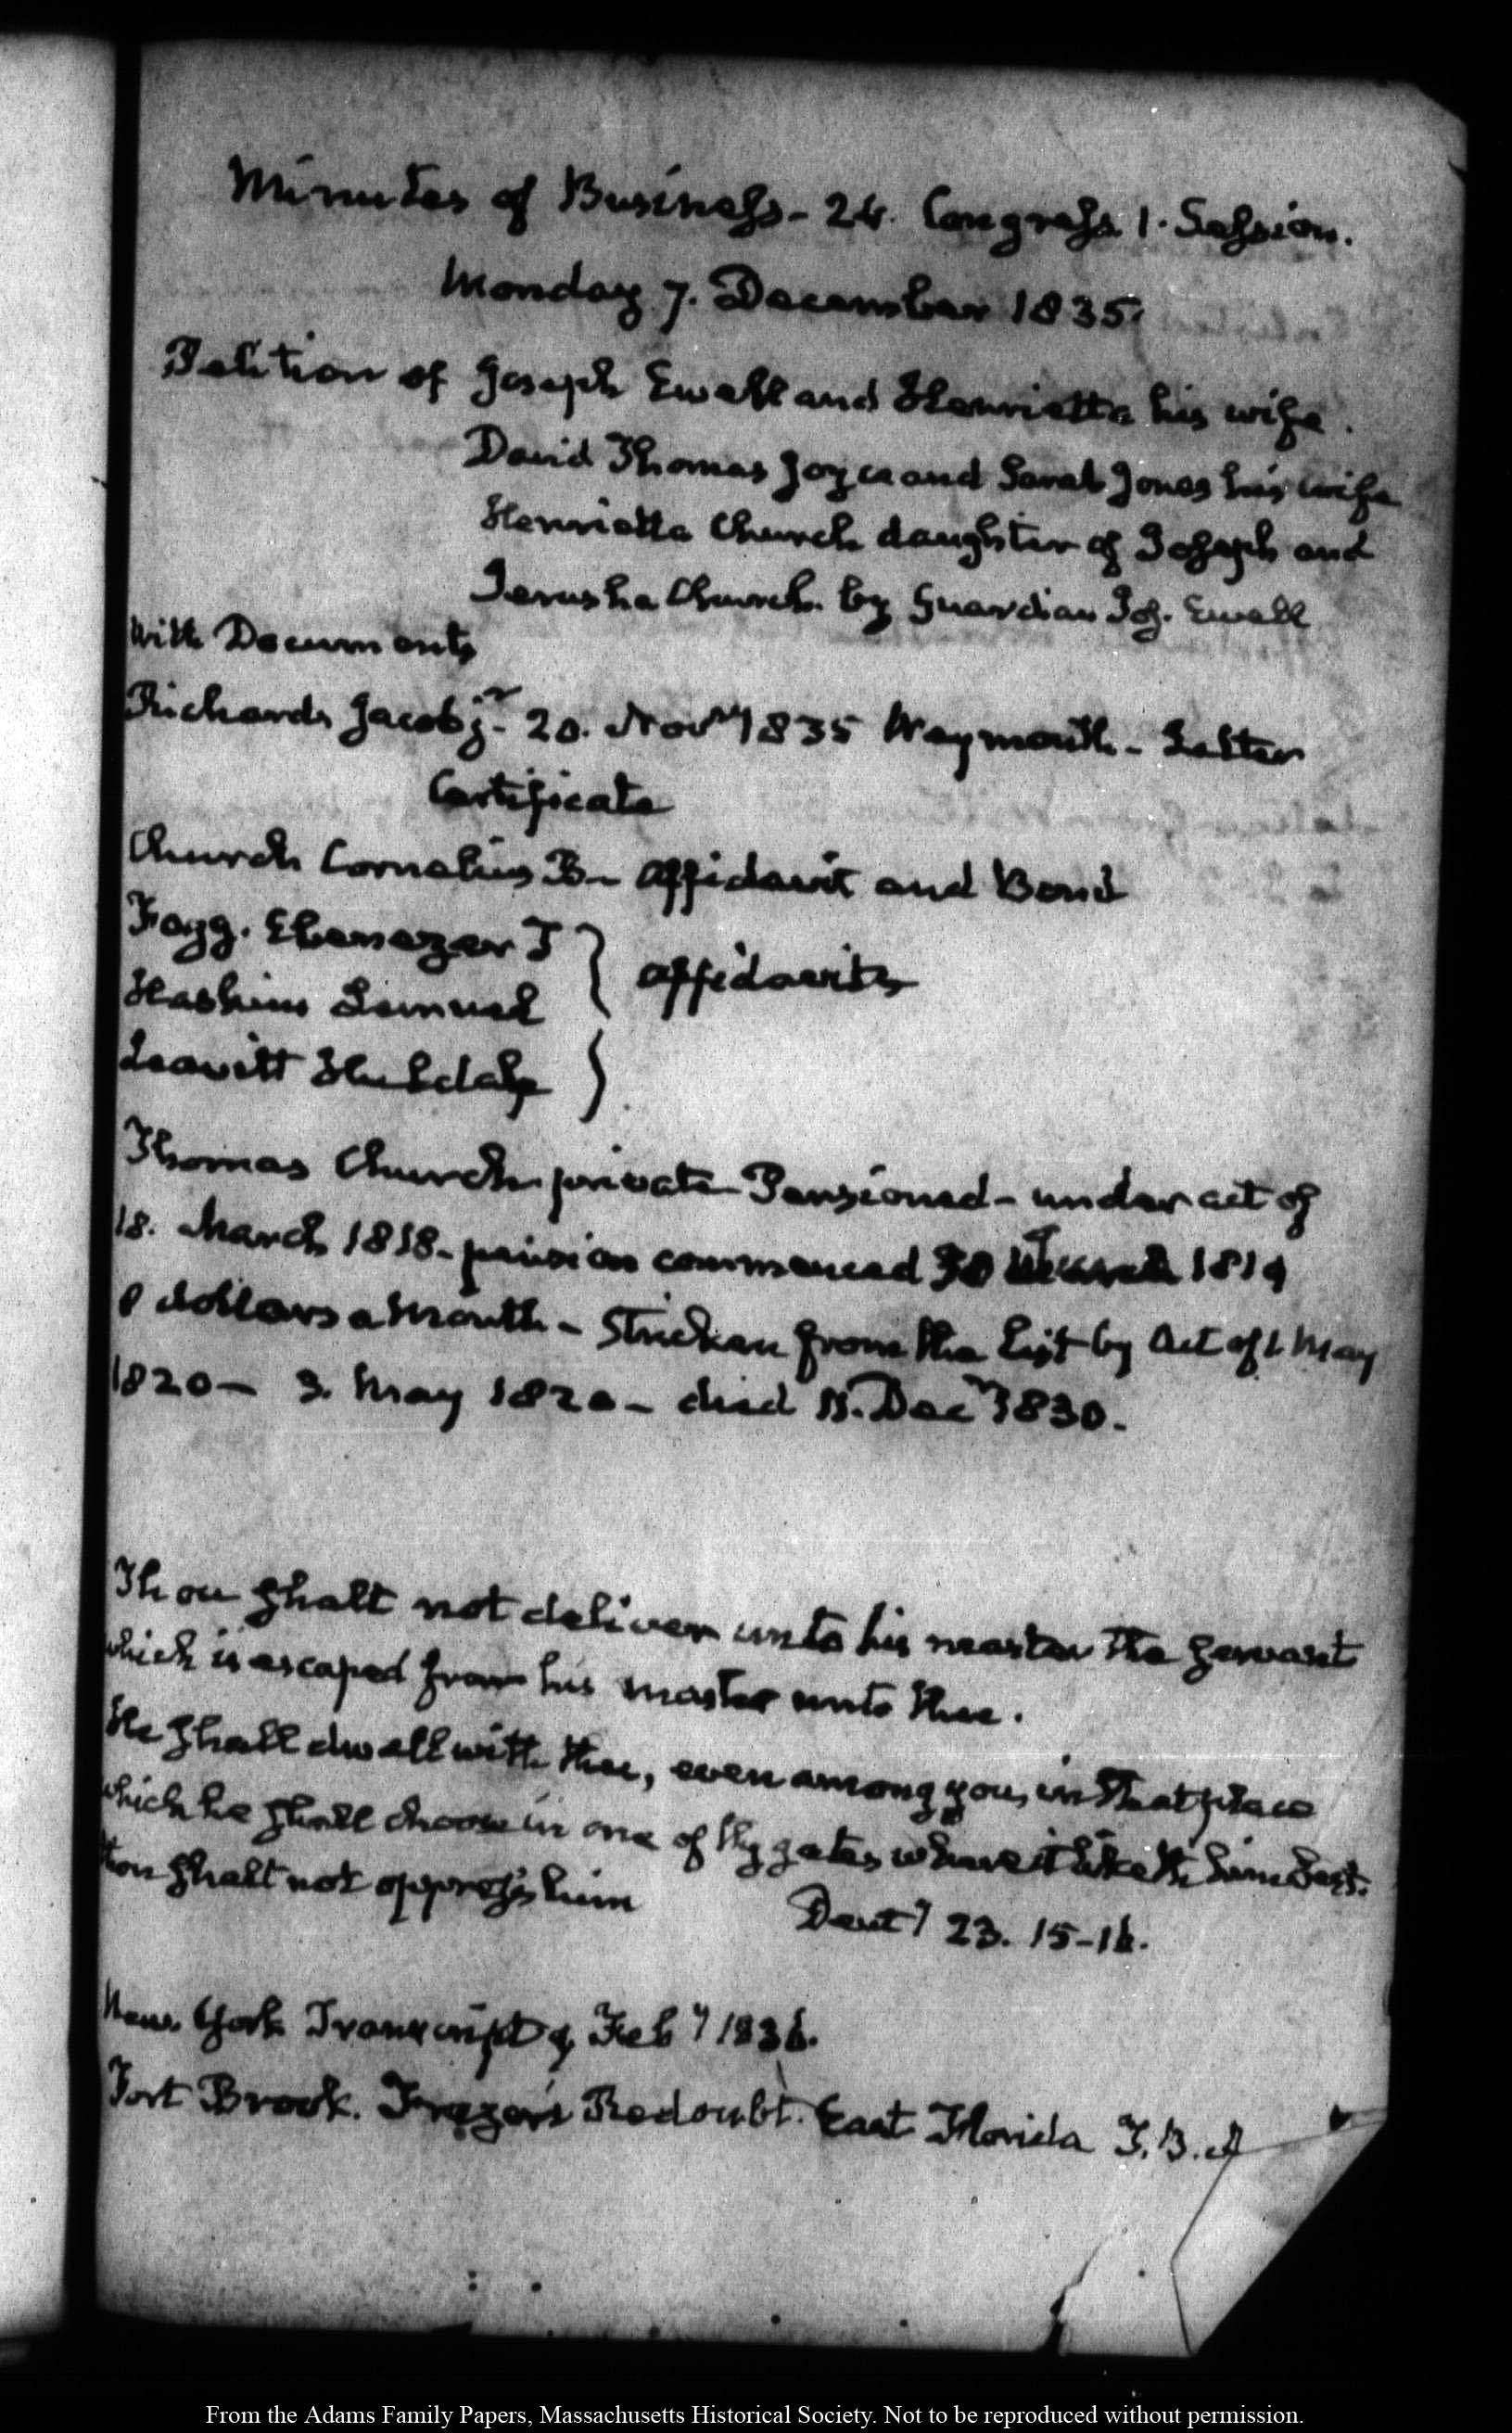 Minutes of Business - 24. Congress. 1. Session.
Monday 7. December 1835.
Petition of Joseph Ewell and Henrietta his wife.
David Thomas Joyce and Sarah Jones his wife
Henrietta Church daughter of Joseph and
Jerusha Church. by Guardian Jos. Ewell
With Documents
Richards Jacob jr. 20. Novr 1835 Weymouth - Letter
Certificate
Church Cornelius B - affidavit and Bond
Fogg. Ebenezer T
Haskins Lemuel
affidavits
Leavitt Huldah
Thomas Church private Pensioned - under act of
18. March 1818 - pension commenced 30 1819
8 dollars a Month - Stricken from the List by Act of 1 May
1820 - 3. May 1820 - died 11. Decr 1830.
Thou shalt not deliver unto his master the servant
which is escaped from his master unto thee.
He shall dwell with thee, even among you, in that place
which he shall choose in one of thy gates where it liketh him best.
thou shalt not oppress him
Deuty 23. 15-16.
New York Transcript 9 Feby 1836.
Fort Brook. Frazer's Redoubt. East Florida T. B. A
From the Adams Family Papers, Massachusetts Historical Society. Not to be reproduced without permission.